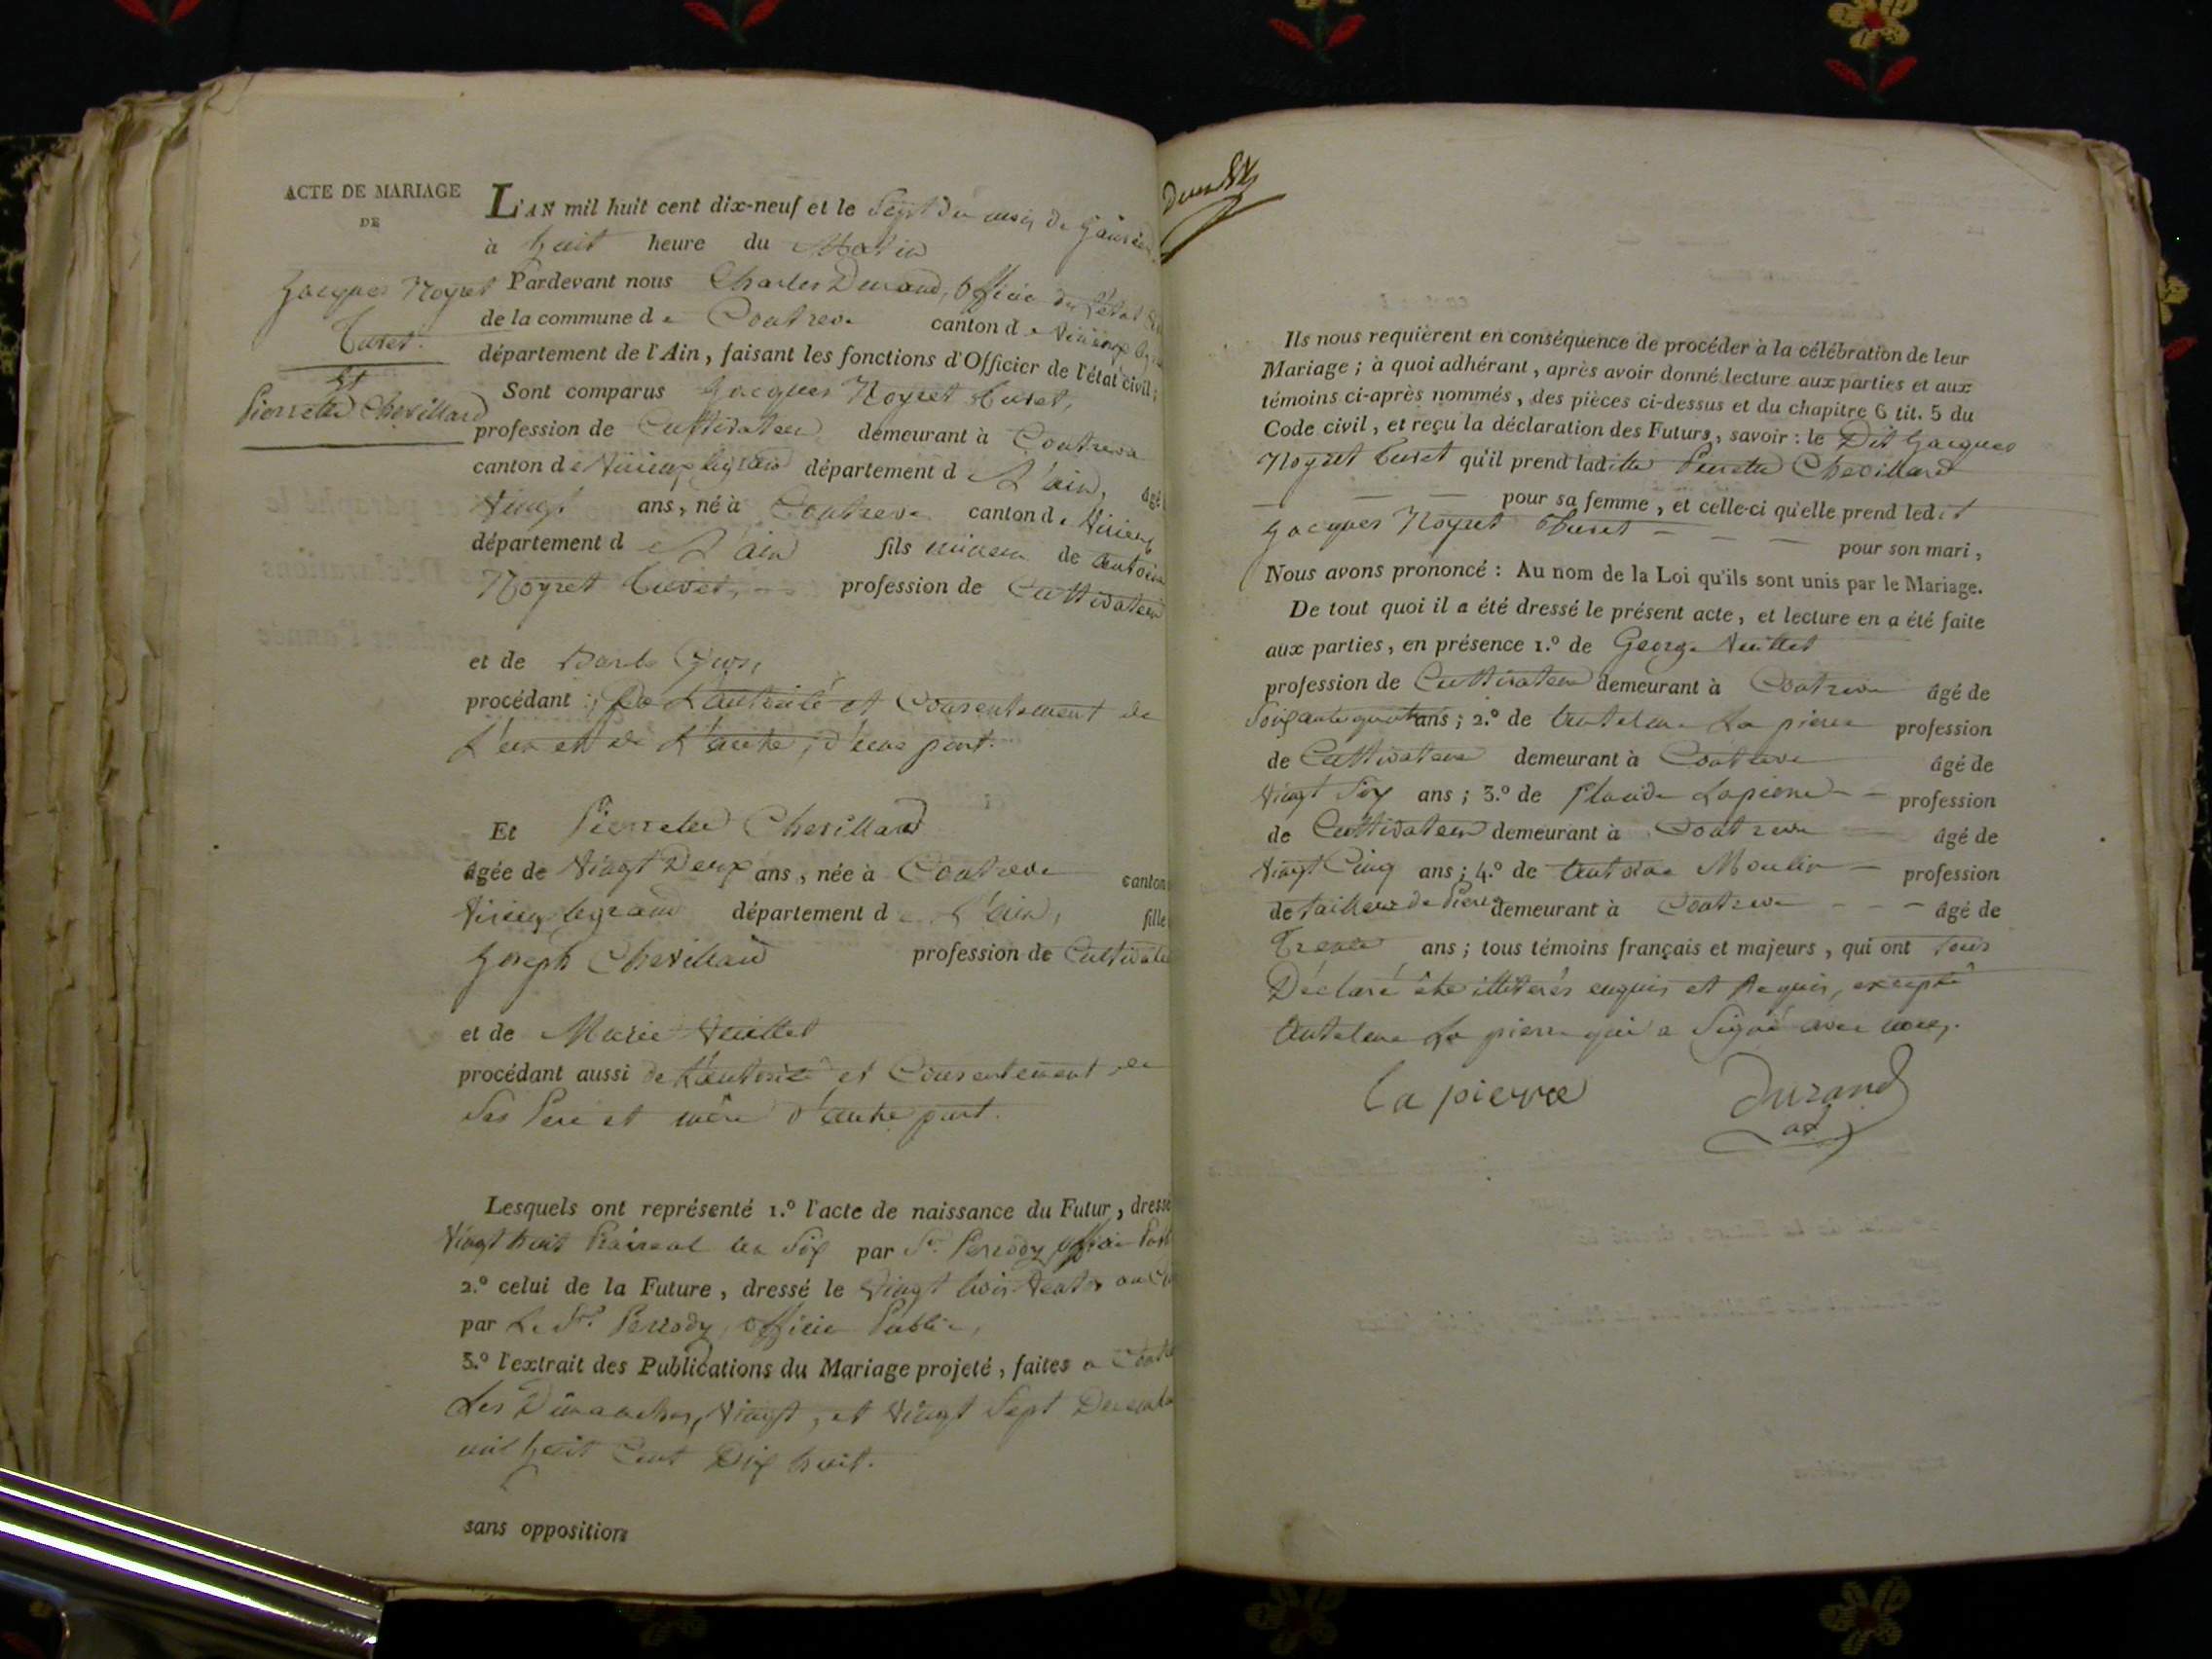 ACTE DE MARIAGE
DE
Jacques Noyret
Curet.
Et
Pierrette Chevillard
L'AN mil huit cent dix-neuf et le Sept du mois de Janvier
à huit heure du Matin
Pardevant nous Charles Durand, Officier de l'état
de la commune de Contrevo canton de Virieux
département de l'Ain, faisant les fonctions d'Officier de l'état civil;
Sont comparus Jacques Noyret Curet,
profession de Cultivateur demeurant à Contrevo
canton de Virieux legrand département de L'ain, âgé
Vingt ans, né à Contrevo canton de Virieux
département de L'ain fils mineur de Antoine
Noyret Curet, profession de Cultivateur
et de Barbe
procédant : De L'autorité et Consentement de
L'un et de L'autre, d'une part.
Et Pierrette Chevillard
âgée de Vingt Deux ans, née à Contrevo canton
Virieux legrand département de L'ain, fille
Joseph Chevillard profession de Cultivate
et de Marie Vuillet
procédant aussi de L'autorité et Consentement de
Ses Pere et mère d'autre part.
Lesquels ont représenté 1.º l'acte de naissance du Futur, dressé
Vingt huit Prairial an Six par Sr. Perrody officier
2.º celui de la Future, dressé le Vingt trois Ventos an
par Le Sr. Perrody, officier Public,
3.º l'extrait des Publications du Mariage projeté, faites a
Les Dimanches, Vingt, et Vingt Sept Decemb
mil huit Cent Dix huit.
sans opposition
Durand
Ils nous requièrent en conséquence de procéder à la célébration de leur
Mariage; à quoi adhérant, après avoir donné lecture aux parties et aux
témoins ci-après nommés, des pièces ci-dessus et du chapitre 6 tit. 5 du
Code civil, et reçu la déclaration des Futurs, savoir : le Dit Jacques
Noyret Curet qu'il prend laditte Pierrette Chevillard
— — — pour sa femme, et celle-ci qu'elle prend ledit
Jacques Noyret Curet — — — pour son mari,
Nous avons prononcé : Au nom de la Loi qu'ils sont unis par le Mariage.
De tout quoi il a été dressé le présent acte, et lecture en a été faite
aux parties, en présence 1.º de George Vuillet
profession de Cultivateur demeurant à Contrevo âgé de
Soixante quatre ans; 2.º de Antelme La pierre profession
de Cultivateur demeurant à Contrevo âgé de
Vingt Six ans; 3.º de Claude Lapierre — profession
de Cultivateur demeurant à Contrevo — âgé de
Vingt Cinq ans; 4.º de Antoine Moulin — profession
de tailleur de Pierre demeurant à Contrevo — — — âgé de
Trente ans; tous témoins français et majeurs, qui ont tous
Déclaré être illitérés enquis et Requis, excepté
Antelme La pierre qui a Signé avec nous.
la pierre Durand